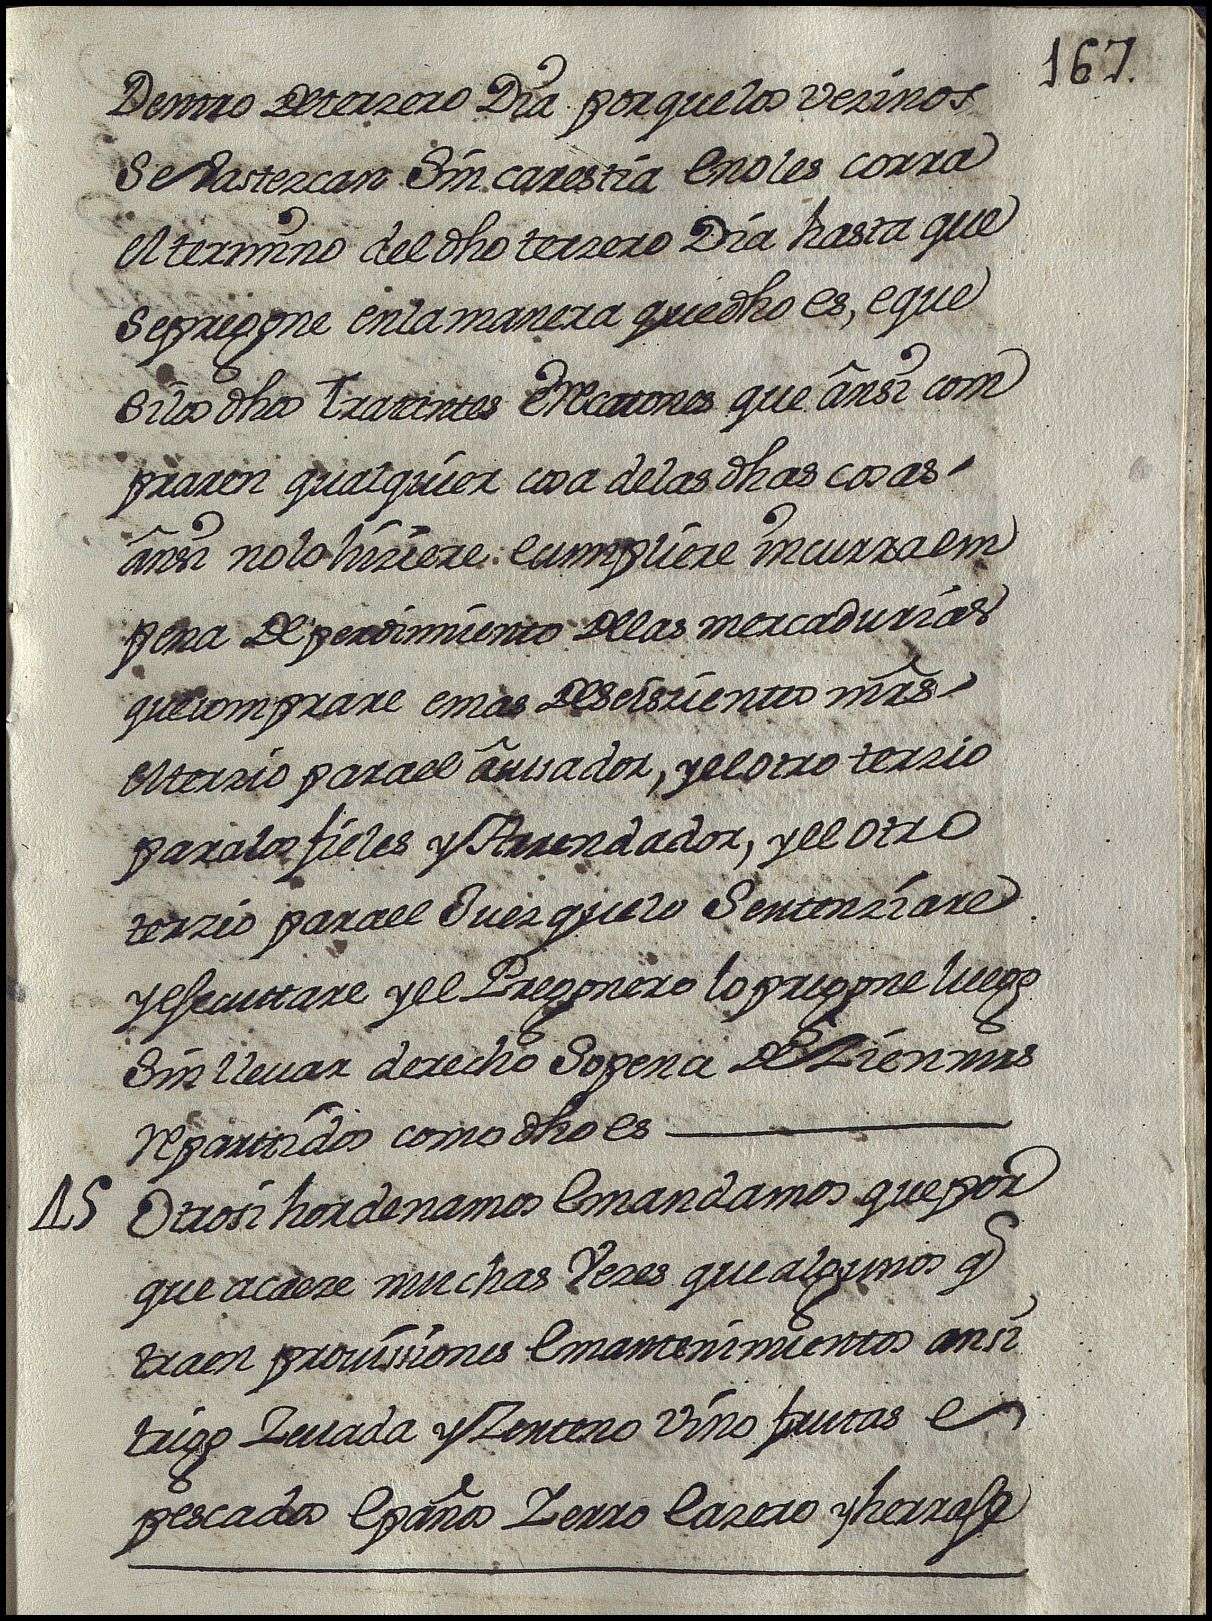 167.
Dentro del terzero Dia porque los vezinos
se Vastezcan Sin carestia e no les corra
el termino del dho terzero Dia hasta que
se pregone en la manera que dho es, e que
si los dhos Tratantes e Recatones que ansi com
praren qualquier cosa de las dhas cosas
ansi no lo hiziere e cumpliere incurra em
pena de perdimiento de las mercadurias
que comprare e mas de seiszientos mrs
el terzio para el acusador, y el otro terzio
para los fieles y Arrendador, y el otro
terzio para el Juez que lo Sentenziare
y esecuttare y el Pregonero lo pregone luego
Sin lleuar derecho So pena de Zien mrs
repartidos como dho es
15 Otrosi hordenamos e mandamos que por
que acaeze muchas Vezes que algunos q
traen prouissiones e mantenimientos ansi
trigo Zeuada y Zenteno vino frutas e
pescados e paños Zerro e azero y herraje